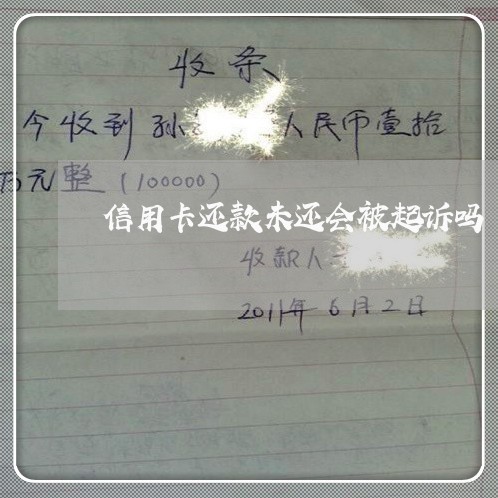 收条
今收到孙 人民币壹拾
万元整(100000)
信用卡还款未还会被起诉吗
收款人
2011年6月2日